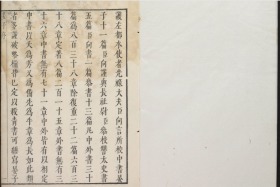 護左都水使者光祿大夫臣向言所校中書晏
子十一篇臣向謹與長社尉臣參校讎太史書
五篇臣向書一篇參書十三篇凡中外書三十
篇爲八百三十八章除復重二十二篇六百三
十八章定著八篇二百一十五章外書無有三
十六章中書無有七十一章中外皆有以相定
中書以夭爲芳又爲備先爲牛章爲長如此類
者多謹頗略椾皆已定以殺青書可繕寫晏子